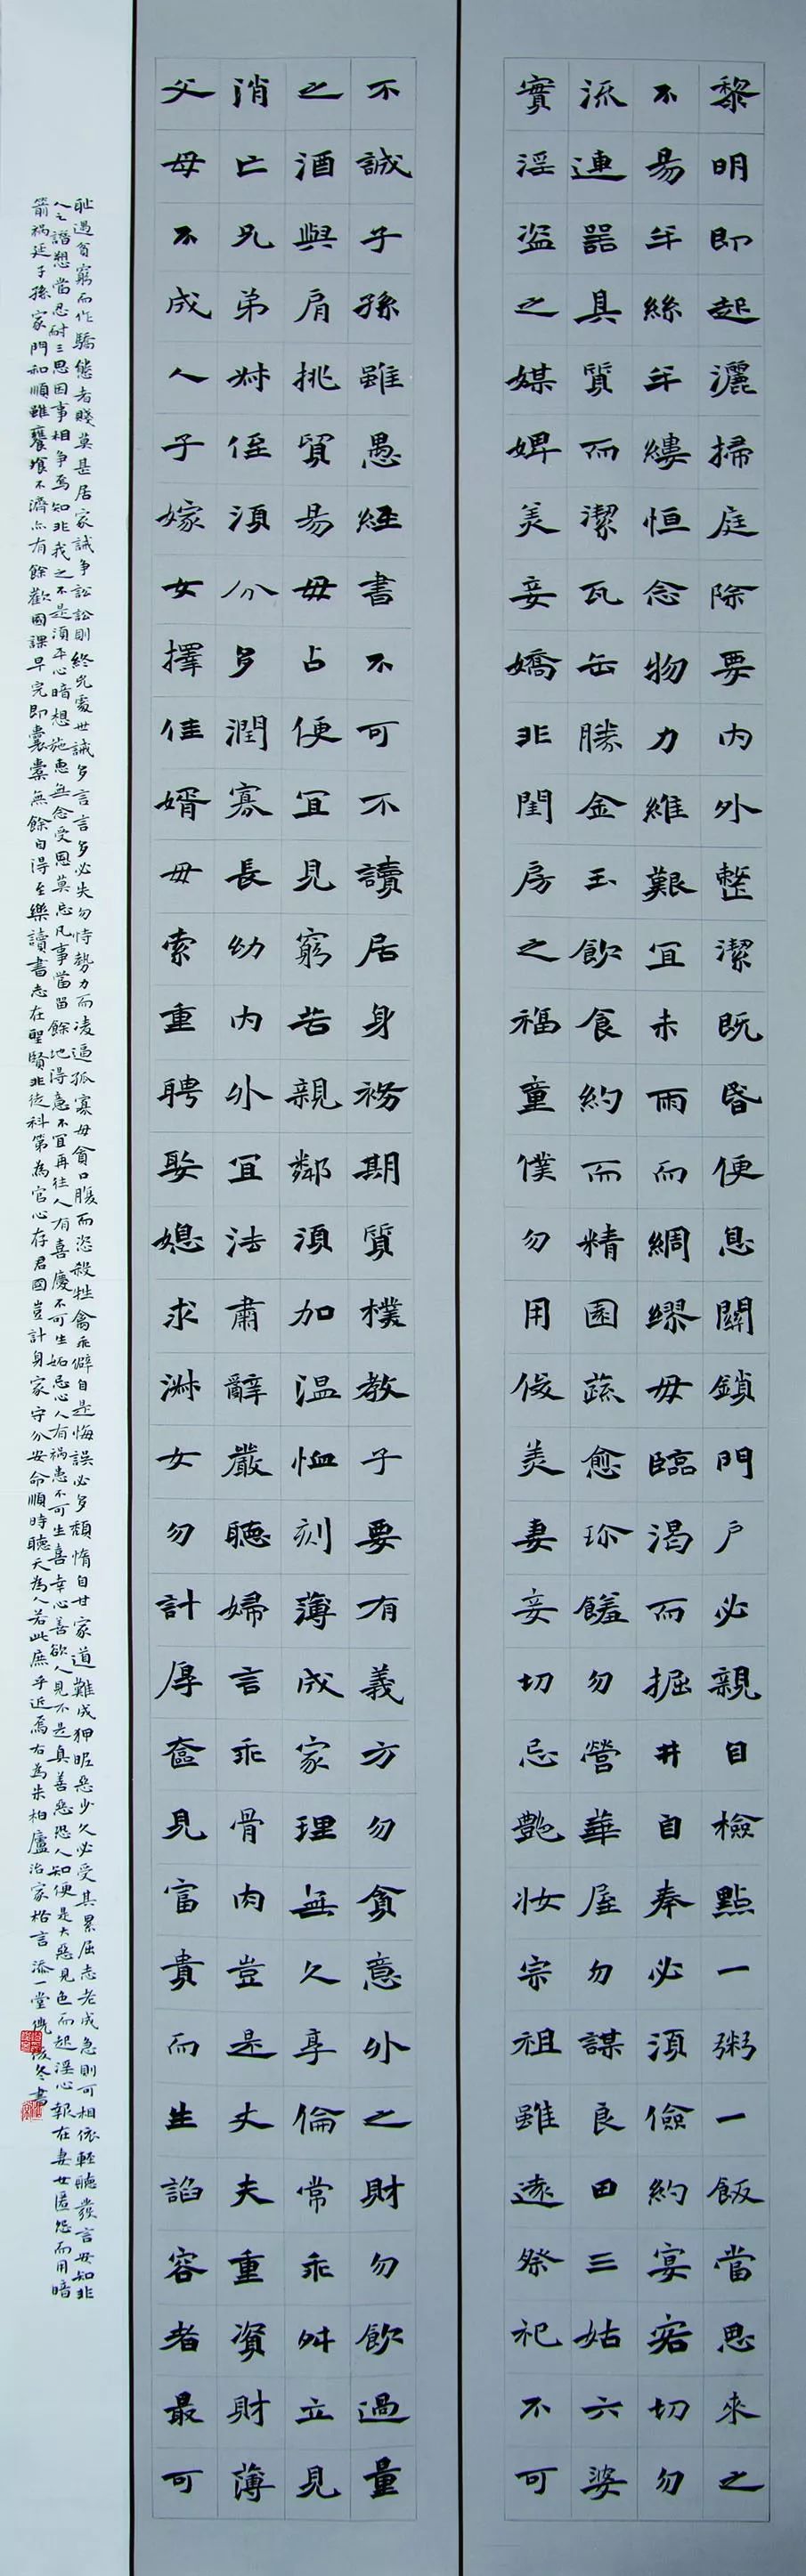 黎明即起灑掃庭除要內外整潔既昏便息關鎖門戶必親自檢點一粥一飯當思來之
不易半絲半縷恒念物力維艱宜未雨而綢繆毋臨渴而掘井自奉必須儉約宴客切勿
流連器具質而潔瓦缶勝金玉飲食約而精園蔬愈珍饈勿營華屋勿謀良田三姑六婆
實淫盜之媒婢美妾嬌非閨房之福童僕勿用俊美妻妾切忌艷妝宗祖雖遠祭祀不可
不誠子孫雖愚經書不可不讀居身務期質樸教子要有義方勿貪意外之財勿飲過量
之酒與肩挑貿易毋占便宜見窮苦親鄰須加温恤刻薄成家理無久享倫常乖舛立見
消亡兄弟叔侄須分多潤寡長幼內外宜法肅辭嚴聽婦言乖骨肉豈是丈夫重資財薄
父母不成人子嫁女擇佳婿毋索重聘娶媳求淑女勿計厚奩見富貴而生諂容者最可
耻遇貧窮而作驕態者賤莫甚居家誡争訟訟則終凶處世誡多言言多必失勿恃勢力而凌逼孤寡毋貪口腹而恣殺牲禽乖僻自是悔誤必多頹惰自甘家道難成狎昵惡少久必受其累屈志老成急則可相依輕聽發言安知非
人之譖愬當忍耐三思因事相争焉知非我之不是須平心暗想施惠無念受恩莫忘凡事當留餘地得意不宜再往人有喜慶不可生妬忌心人有禍患不可生喜幸心善欲人見不是真善惡恐人知便是大惡見色而起淫心報在妻女匿怨而用暗
箭禍延子孫家門和順雖饔飧不濟亦有餘歡國課早完即囊橐無餘自得至樂讀書志在聖賢非徒科第為官心存君國豈計身家守分安命順時聽天為人若此庶乎近焉右為朱柏廬治家格言添一堂 冬書